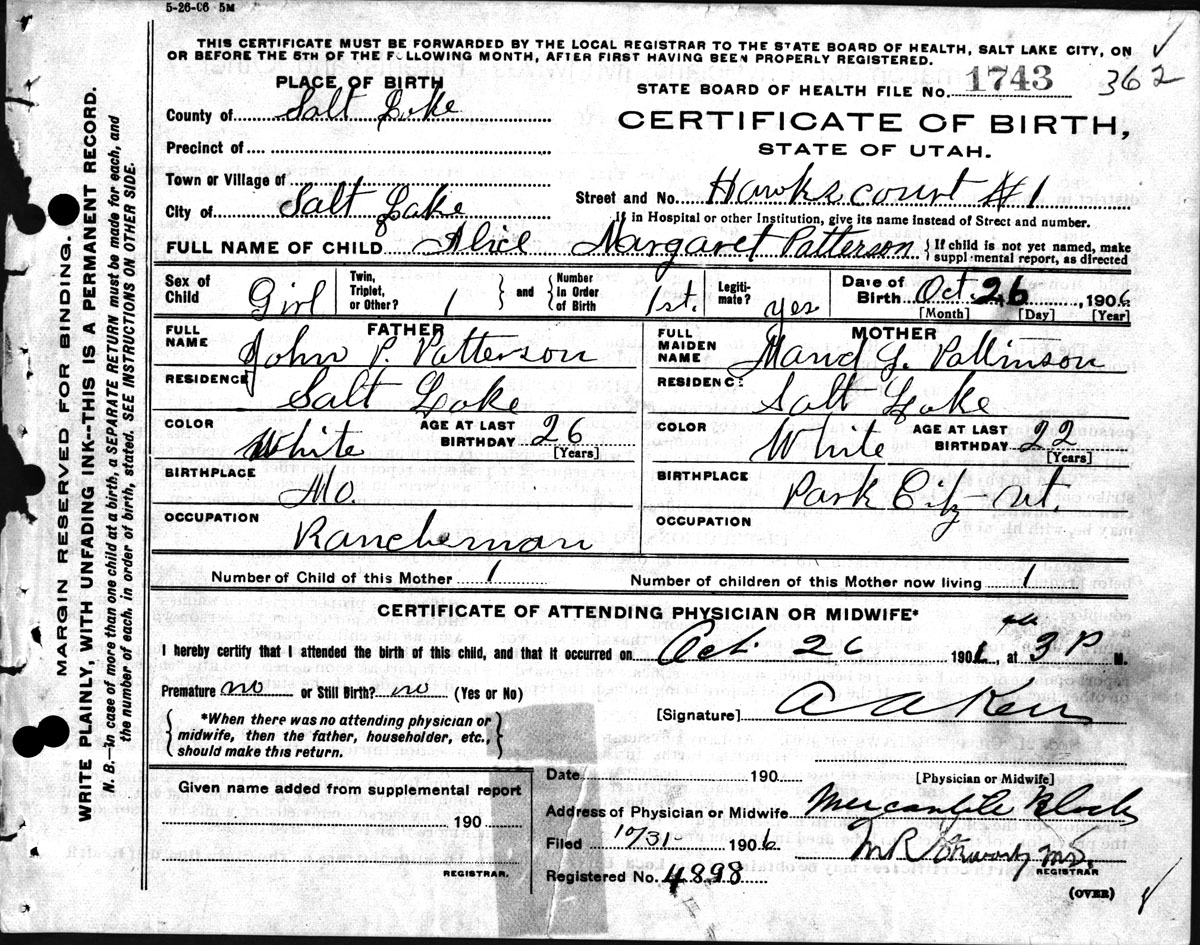 5-26-06 5M
THIS CERTIFICATE MUST BE FORWARDED BY THE LOCAL REGISTRAR TO THE STATE BOARD OF HEALTH, SALT LAKE CITY, ON
OR BEFORE THE 5TH OF THE FOLLOWING MONTH, AFTER FIRST HAVING BEEN PROPERLY REGISTERED.
PLACE OF BIRTH
STATE BOARD OF HEALTH FILE No. 1743 362
County of Salt Lake
CERTIFICATE OF BIRTH,
STATE OF UTAH.
Precinct of
Town or Village of
Street and No. Hawks court #1
City of Salt Lake
If in Hospital or other Institution, give its name instead of Street and number.
FULL NAME OF CHILD Alice Margaret Patterson {If child is not yet named, make supplemental report, as directed
Sex of Child Girl Twin, Triplet, or Other? 1 } and { Number in Order of Birth 1st. Legitimate? yes Date of Birth Oct. 26, 1906
[Month] [Day] [Year]
FATHER
FULL NAME John P. Patterson
RESIDENCE Salt Lake
COLOR White AGE AT LAST BIRTHDAY 26 [Years]
BIRTHPLACE Mo.
OCCUPATION Rancheman
MOTHER
FULL MAIDEN NAME Maud G. Pattinson
RESIDENCE Salt Lake
COLOR White AGE AT LAST BIRTHDAY 22 [Years]
BIRTHPLACE Park City Ut.
OCCUPATION
Number of Child of this Mother 1 Number of children of this Mother now living 1
CERTIFICATE OF ATTENDING PHYSICIAN OR MIDWIFE*
I hereby certify that I attended the birth of this child, and that it occurred on Oct. 26 1906, at 3 P M.
Premature no or Still Birth? no (Yes or No)
{*When there was no attending physician or midwife, then the father, householder, etc., should make this return.}
[Signature]
[Physician or Midwife]
Given name added from supplemental report
190
REGISTRAR.
Date 190
Address of Physician or Midwife Mercantile Block
Filed 10/31- 1906
REGISTRAR
Registered No. 4898
(OVER)
MARGIN RESERVED FOR BINDING.
WRITE PLAINLY, WITH UNFADING INK--THIS IS A PERMANENT RECORD.
N. B.—In case of more than one child at a birth, a SEPARATE RETURN must be made for each, and
the number of each, in order of birth, stated. SEE INSTRUCTIONS ON OTHER SIDE.